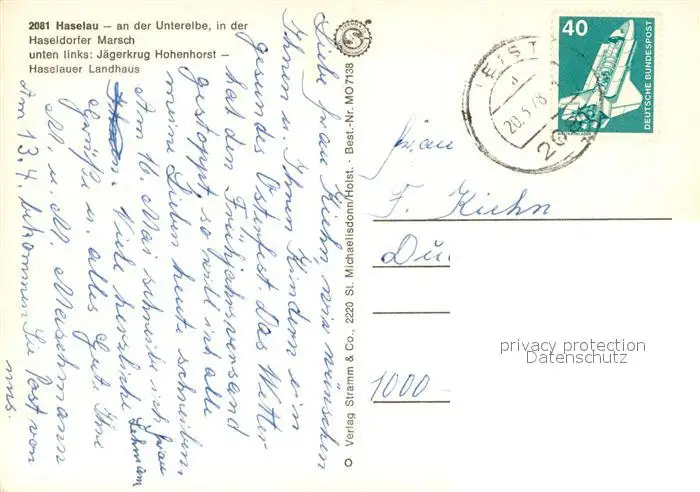 2081 Haselau – an der Unterelbe, in der
Haseldorfer Marsch
unten links: Jägerkrug Hohenhorst –
Haselauer Landhaus
Liebe Frau Kiehn, wir wünschen
Ihnen u. Ihren Kindern ein
gesundes Osterfest. Das Wetter
hat den Frühjahrsversand
gestoppt, so will ich alle
meine Lieben heute schreiben.
Am 16. Mai schreibe ich Frau
Lehmann
Viele herzliche
Grüße u. alles Gut. Ihre
M. u. M. Maschmann
Am 13.4. bekommen Sie Post von
uns.
© Verlag Stramm & Co., 2220 St. Michaelisdonn/Holst. · Best.-Nr. MO 7138
S
40
DEUTSCHE BUNDESPOST
20.5.78
Frau
F. Kiehn
1000
privacy protection
Datenschutz